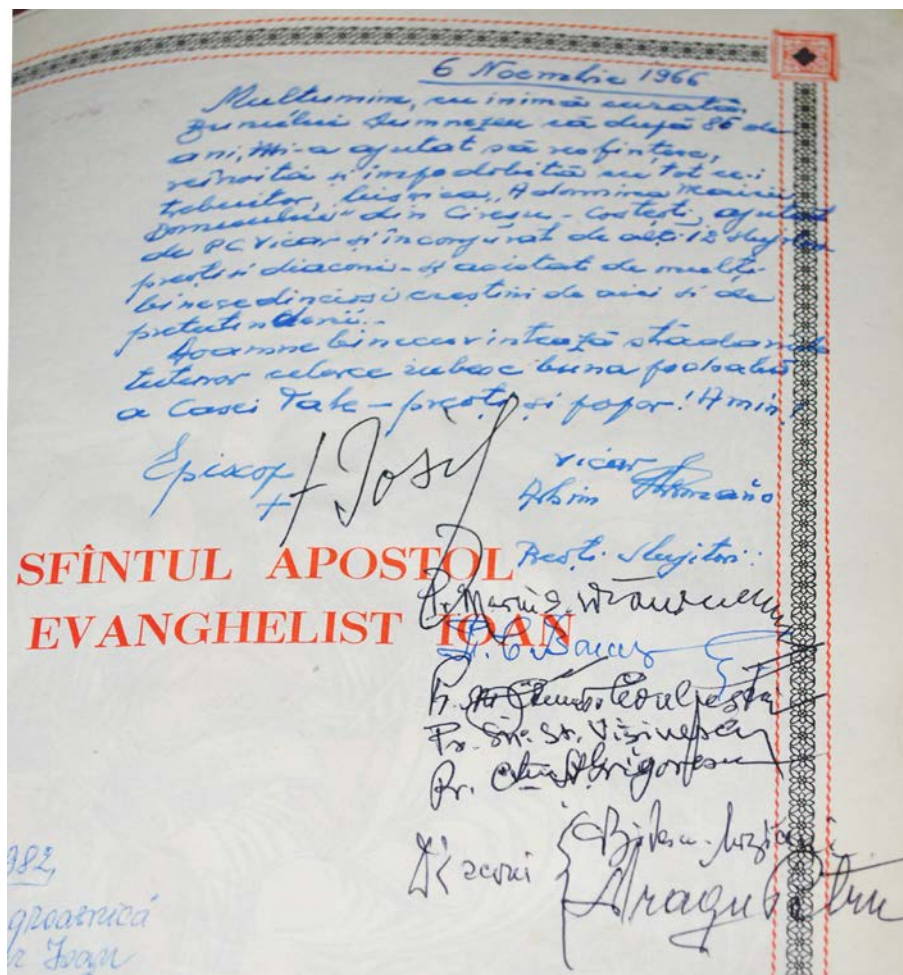 6 Noembrie 1966
Mulțumim, cu inimă curată,
Bunului Dumnezeu că după 86 de
ani, mi-a ajutat să resfințesc,
reînoită și împodobită cu tot ce-i
trebuitor, biserica „Adormirea Maicii
Domnului" din Cireșu - Costești, ajutat
de PC Vicar și înconjurat de alți 12 slujitori
preoți și diaconi - și asistat de mulți
binecredincioși creștini de aici și de
pretutindeni.
Doamne binecuvintează strădaniile
tuturor celor ce iubesc buna podoabă
a Casei Tale - preoți și popor! Amin!
Episcop + Iosif
vicar
Arhim
SFÎNTUL APOSTOL
EVANGHELIST IOAN
Preoți slujitori:
Pr. Marin
Pr. C.
Pr.
Pr. St. Vișinescu
Pr. Grigorescu
Diaconi
Dragu Petru
982,
groaznică
Ioan